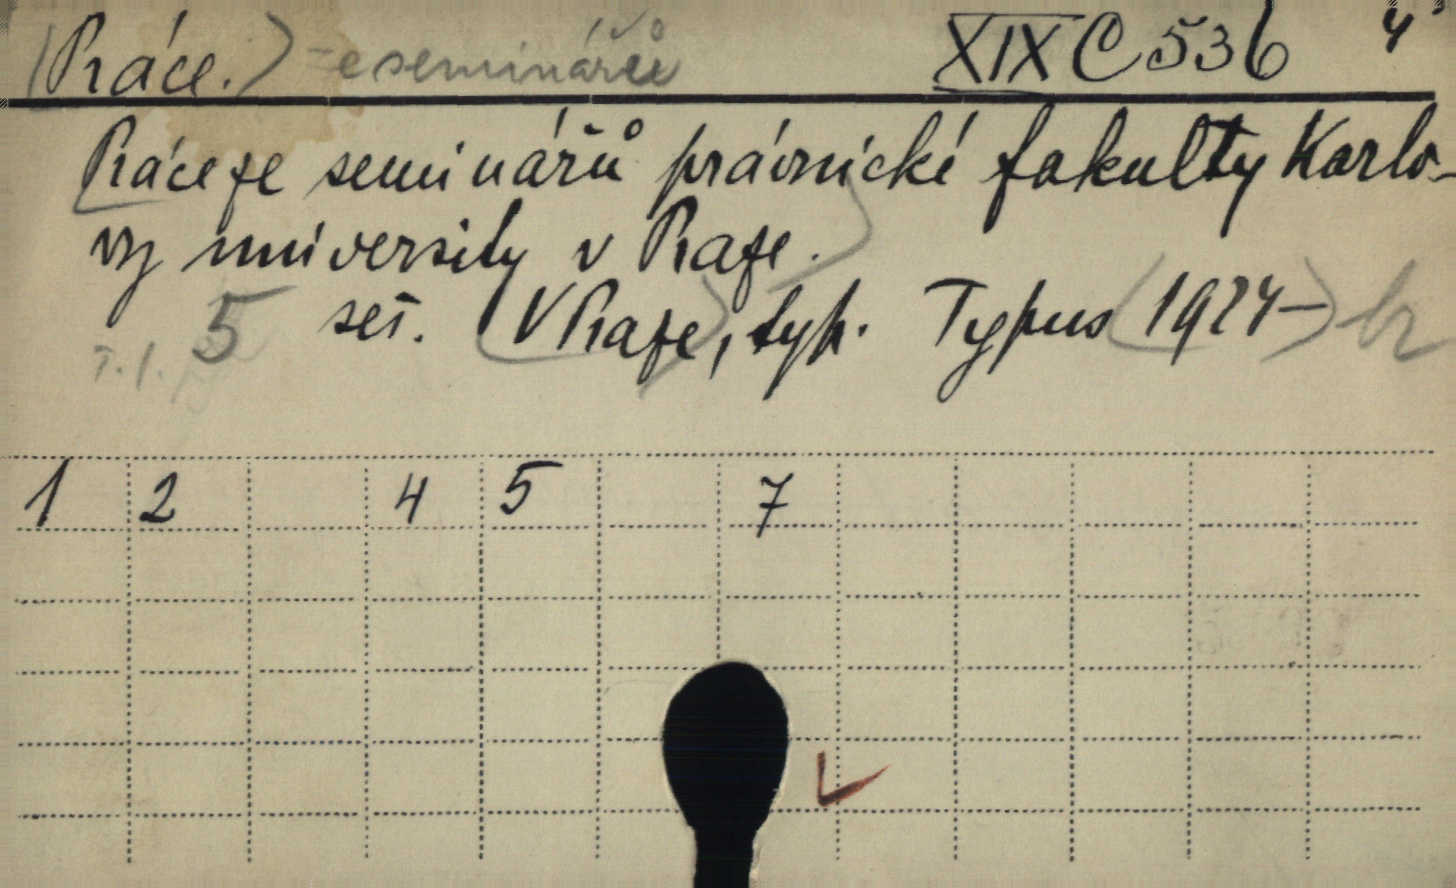 (Práce.) -e seminářů XIX C 536 4°
Práce ze seminářů právnické fakulty Karlo-
vy university v Praze.
5 seš. (V Praze, typ. Typus (1924-)
T. 1.
1 2 4 5 7